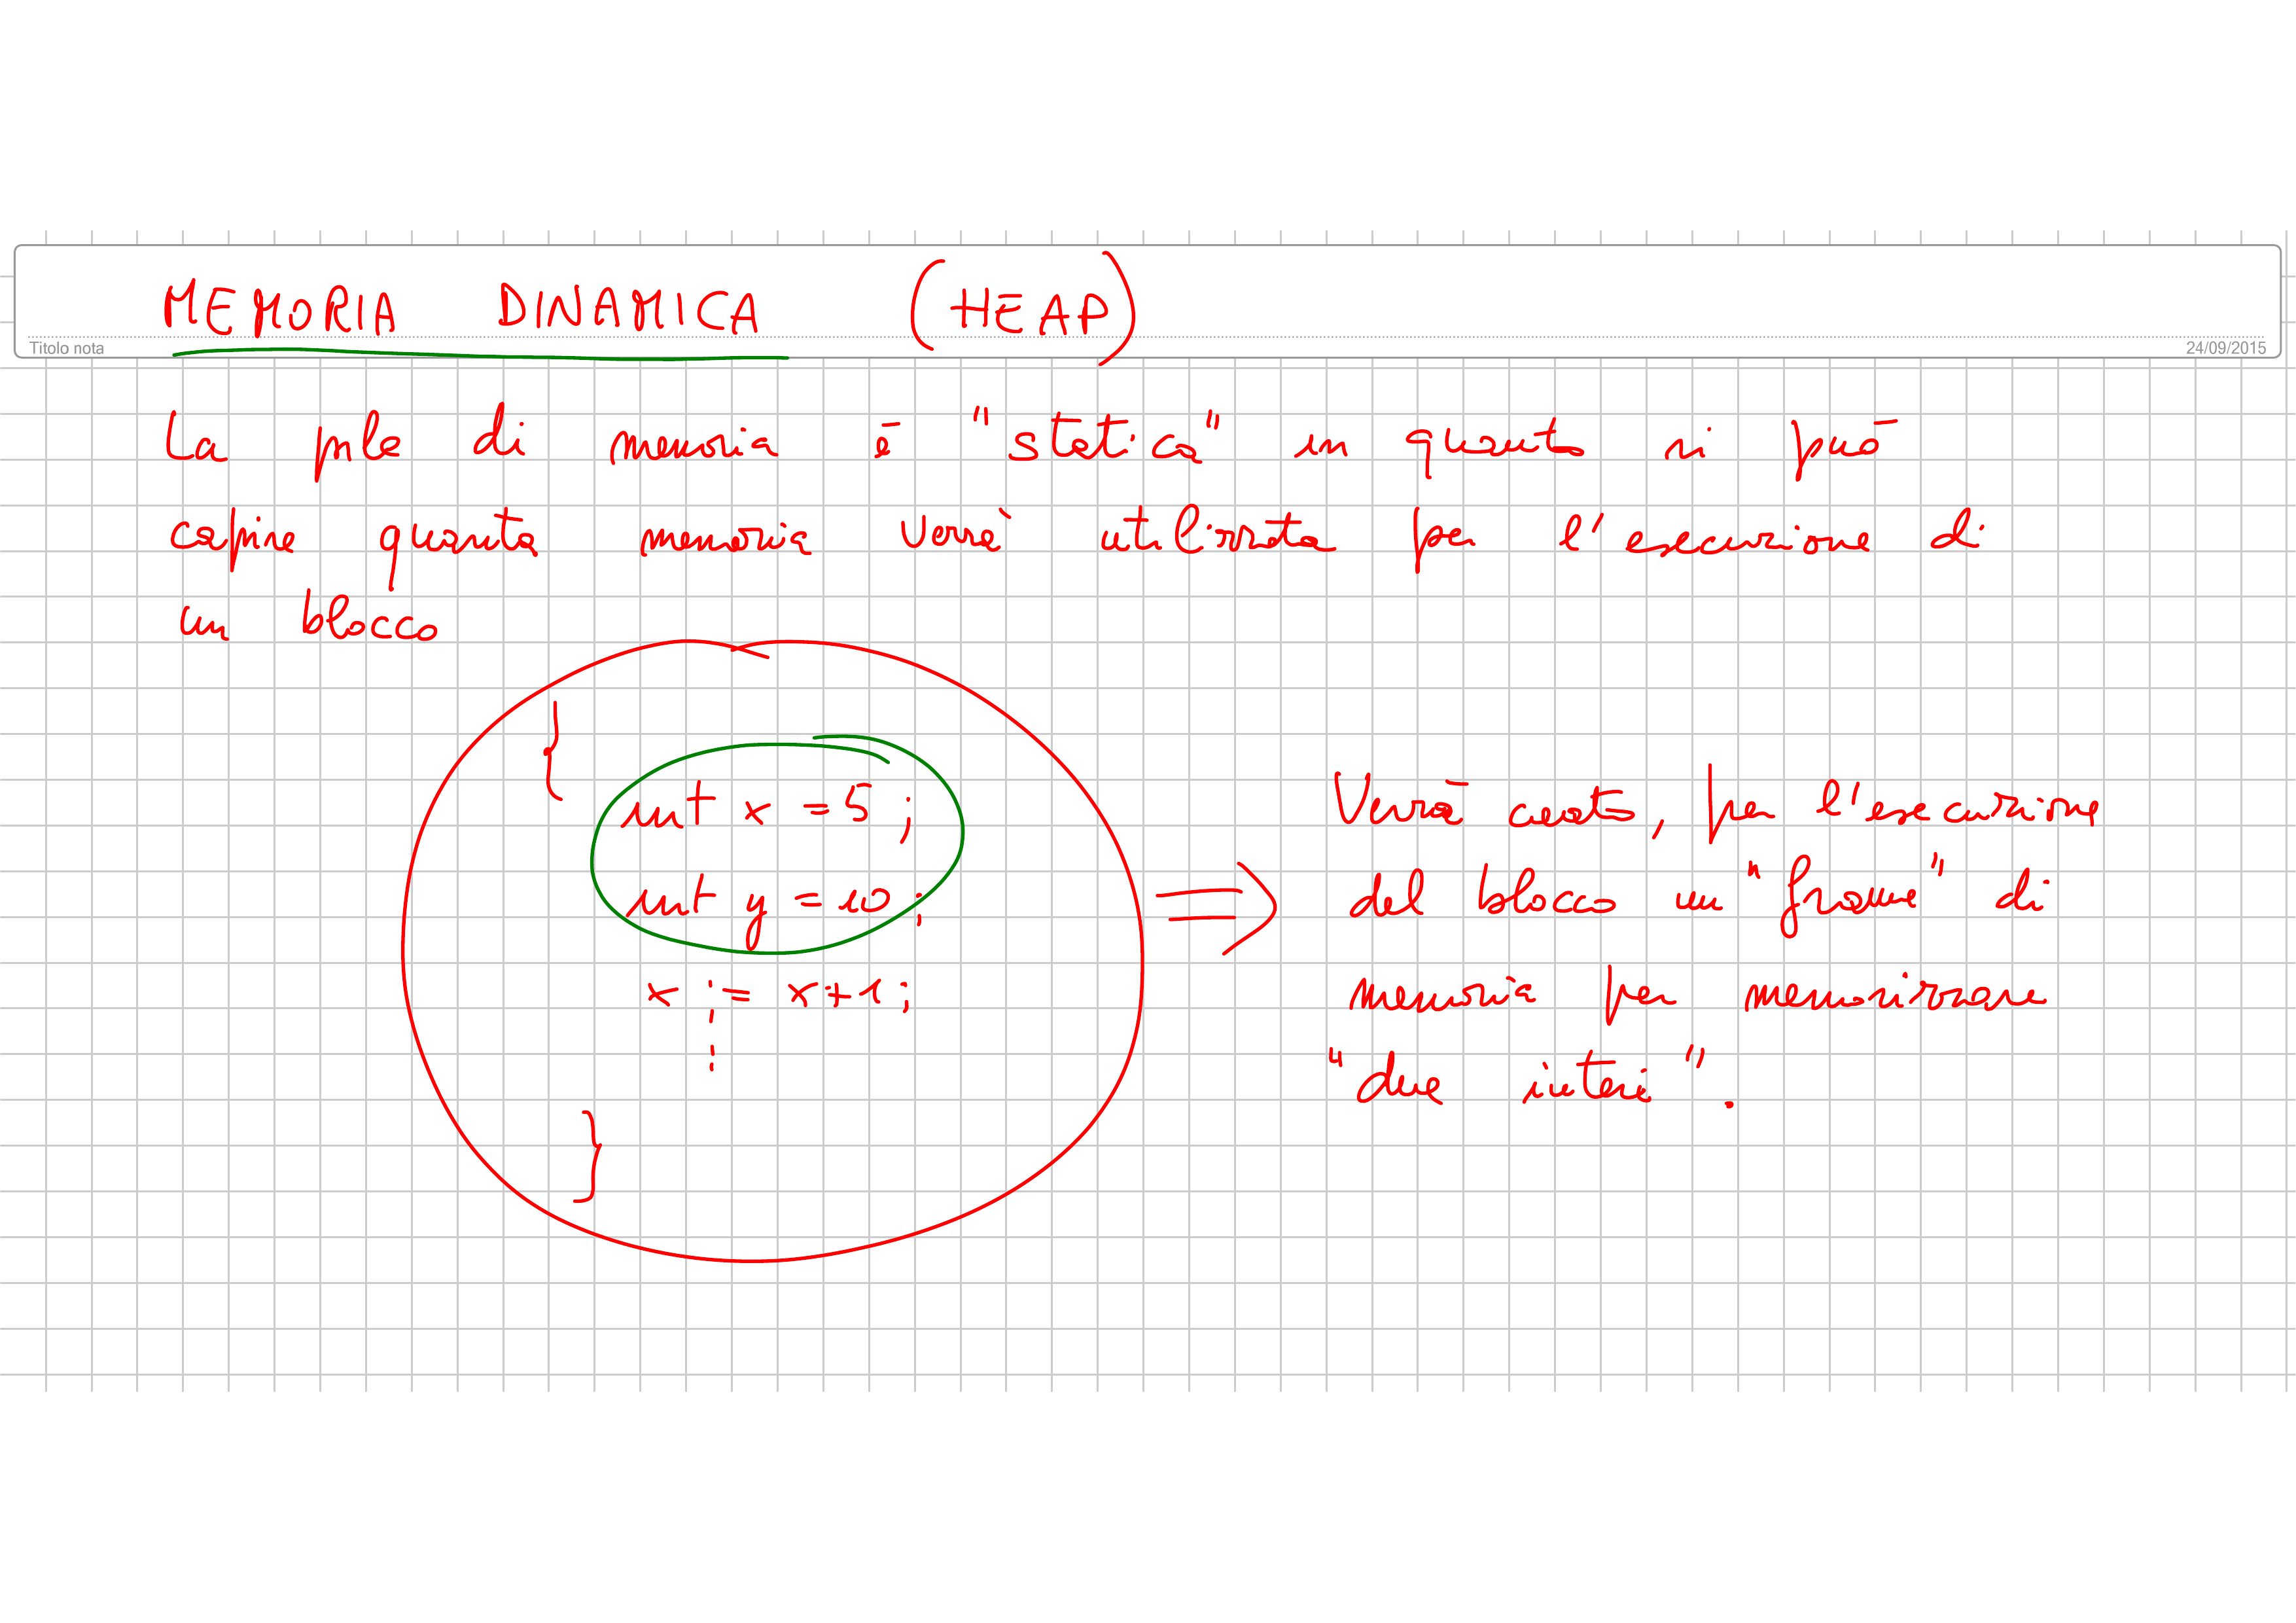 MEMORIA DINAMICA (HEAP)
Titolo nota
24/09/2015
La pila di memoria è "statica" in quanto si può
capire quanta memoria verrà utilizzata per l'esecuzione di
un blocco
{
int x = 5;
int y = 10;
x := x+1;
}
Verrà creato, per l'esecuzione
del blocco un "frame" di
memoria per memorizzare
"due interi".